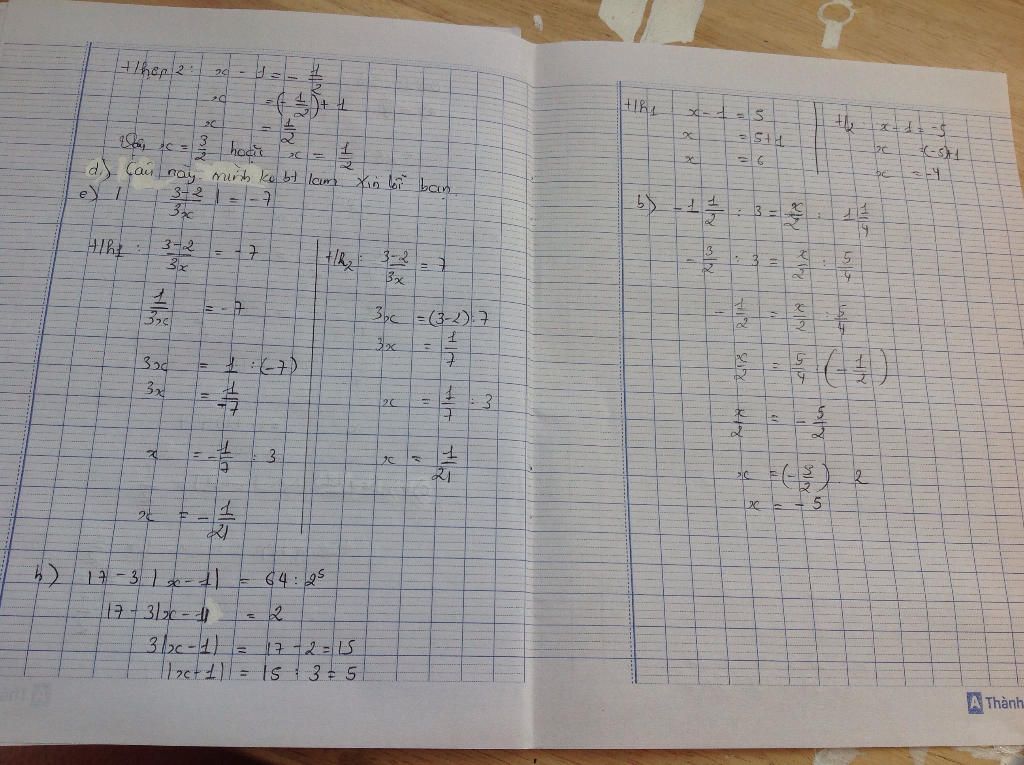 +/hợp 2: x - 1 = - 1/2
x = (- 1/2) + 1
x = 1/2
Vậy x = 3/2 hoặc x = 1/2
d) Câu này mình ko bt làm xin lỗi bạn
e) | 3-2/3x | = -7
+/h1: 3-2/3x = -7
1/3x = -7
3x = 1 : (-7)
3x = 1/-7
x = - 1/7 : 3
x = - 1/21
+/h2: 3-2/3x = 7
3x = (3-2):7
3x = 1/7
x = 1/7 : 3
x = 1/21
h) 17 - 3 |x - 1| = 64 : 2⁵
17 - 3|x - 1| = 2
3|x - 1| = 17 - 2 = 15
|x + 1| = 15 : 3 = 5
+/h1 x - 1 = 5
x = 5+1
x = 6
+/2 x - 1 = -5
x = (-5)+1
x = -4
b) - 1 1/2 : 3 = x/2 : 1 1/4
- 3/2 : 3 = x/2 : 5/4
- 1/2 = x/2 : 5/4
x/2 = 5/4 : (- 1/2)
x/2 = - 5/2
x = (- 5/2) . 2
x = - 5
A Thành